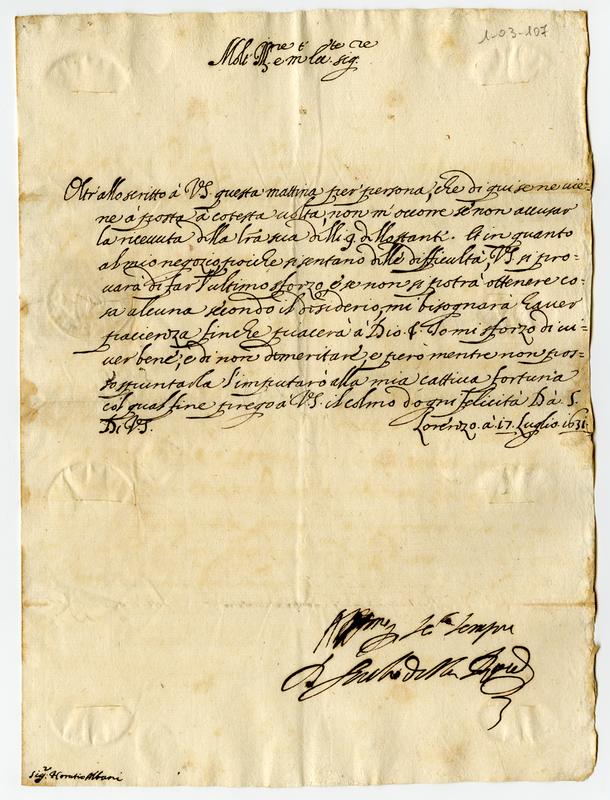 1-03-107
Molt Ill.re et ... sig.re
Oltr'allo scritto à VS questa mattina per persona, che di qui se ne vie=
ne a posta à cotesta volta, non m'occorre se non accusar
la ricevuta della l'ra sua delli 9 dello stante. Et in quanto
al mio negozio, poiche si sentano delle difficultà, VS si pro=
vará di far l'ultimo sforzo, e se non si potrà ottenere co=
sa alcuna secondo il disiderio, mi bisognarà haver
pacienza finche piacerà à Dio. Io mi sforzo di vi=
ver bene, e di non demeritare, e però mentre non pos=
so spuntarla l'imputarò alla mia cattiva fortuna
col qual fine prego à VS. il colmo d'ogni felicità Da S.
Lorenzo à 17. Luglio 1631.
Di VS.
Aff.mo se.re sempre
Giulio della
Sig.r Horatio Albani